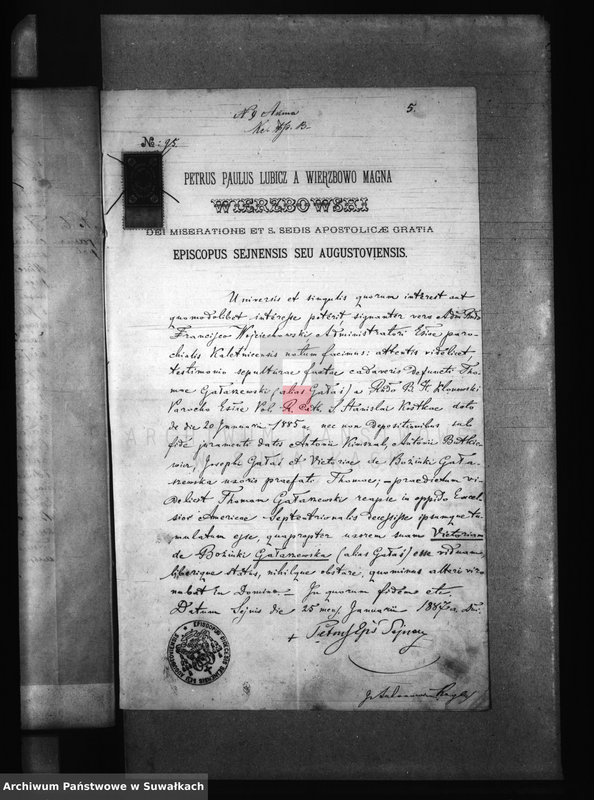 N 9 Asma 5.
№: 95.
PETRUS PAULUS LUBICZ A WIERZBOWO MAGNA
WIERZBOWSKI
DEI MISERATIONE ET S. SEDIS APOSTOLICÆ GRATIA
EPISCOPUS SEJNENSIS SEU AUGUSTOVIENSIS.
Universis et singulis quorum interest aut
quomodolibet interesse poterit signanter vero
Francisco Wojciechowski Administratori Eccl̃iæ paro-
chialis Kaletnicensis notum facimus: attentis videlicet
testimonio sepulturae factae cadaveris defuncti Tho-
mae Gałaszewski (alias Gałaś) a B. H. Klonowski
Parocho Eccl̃iæ Pol. R. Cath. S. Stanislai Kostkae dato
de die 20 Januarii 1885 a. nec non depositionibus sub
fide juramenti datis Antonii Antonii
Josephi Gałaś et Victoriae de Bożinki Gała-
szewska uxoris praefati Thomae, — praedictum vi-
delicet Thomam Gałaszewski reapse in oppido Excel-
sior Americae Septentrionalis decessisse ipsumque tu-
mulatum esse, quapropter uxorem suam Victoriam
de Bożinki Gałaszewska (alias Gałaś) esse viduam,
liberique status, nihilque obstare, quominus alteri viro
nubat in Domino. — In quorum fidem etc.
Datum Sejnis die 25 mens. Januarii 1887 a. Dñi.
+
EPISCOPUS SEJNENSIS SEU AUGUSTOVIENSIS
Archiwum Państwowe w Suwałkach